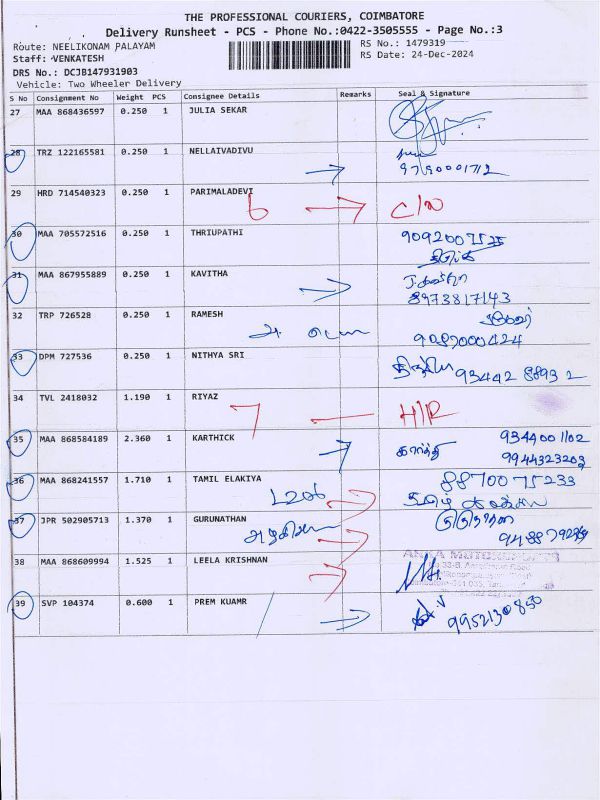 THE PROFESSIONAL COURIERS, COIMBATORE
Delivery Runsheet - PCS - Phone No.:0422-3505555 - Page No.:3
Route: NEELIKONAM PALAYAM RS No.: 1479319
Staff: VENKATESH RS Date: 24-Dec-2024
DRS No.: DCJB147931903
Vehicle: Two Wheeler Delivery
S No Consignment No Weight PCS Consignee Details Remarks Seal & Signature
27 MAA 868436597 0.250 1 JULIA SEKAR
28 TRZ 122165581 0.250 1 NELLAIVADIVU
29 HRD 714540323 0.250 1 PARIMALADEVI 6 C/N
30 MAA 705572516 0.250 1 THRIUPATHI
31 MAA 867955889 0.250 1 KAVITHA
8973817143
32 TRP 726528 0.250 1 RAMESH
9087000424
33 DPM 727536 0.250 1 NITHYA SRI
34 TVL 2418032 1.190 1 RIYAZ 7
35 MAA 868584189 2.360 1 KARTHICK கார்த்தி 9344001102
9944323203
36 MAA 868241557 1.710 1 TAMIL ELAKIYA 8870075233
37 JPR 502905713 1.370 1 GURUNATHAN
38 MAA 868609994 1.525 1 LEELA KRISHNAN
39 SVP 104374 0.600 1 PREM KUAMR
9952130850